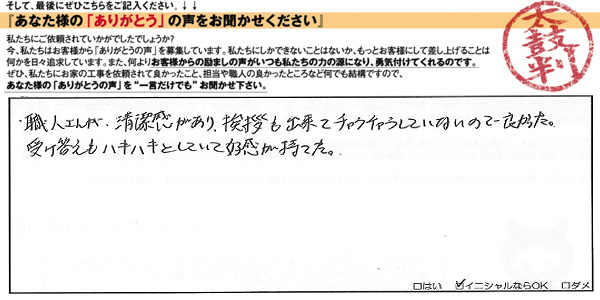 そして、最後にぜひこちらをご記入ください。↓↓
『あなた様の「ありがとう」の声をお聞かせください』
私たちにご依頼されていかがでしたでしょうか?
今、私たちはお客様から「ありがとうの声」を募集しています。私たちにしかできないことはないか、もっとお客様にして差し上げることは
何かを日々追求しています。また、何よりお客様からの励ましの声がいつも私たちの力の源になり、勇気付けてくれるのです。
ぜひ、私たちにお家の工事を依頼されて良かったこと、担当や職人の良かったところなど何でも結構ですので、
あなた様の「ありがとうの声」を“一言だけでも”お聞かせ下さい。
太鼓判
・職人さんが、清潔感があり、挨拶も出来てチャラチャラしていないので良かった。
受け答えもハキハキとしていて好感が持てた。
□はい ☑イニシャルならOK □ダメ